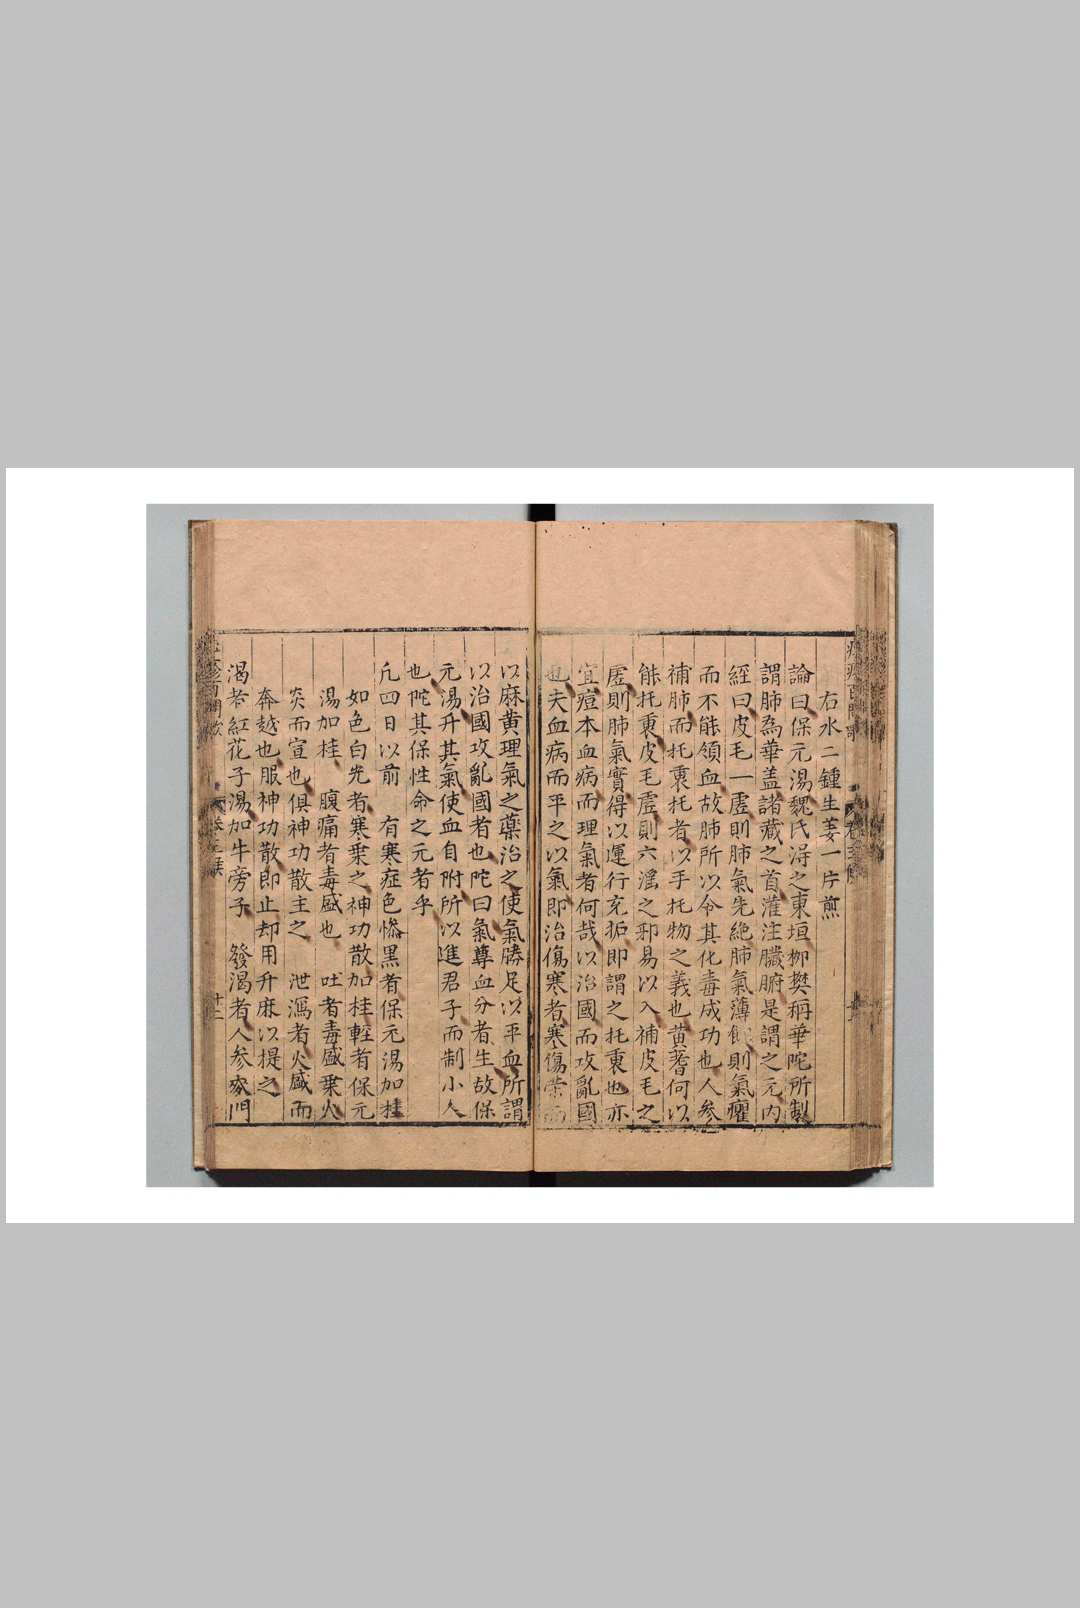 右水二鍾生姜一片煎
論曰保元湯魏氏淂之東垣栁樊稱華陀所製
謂肺為華盖諸藏之首灌注臟腑是謂之元內
經曰皮毛一虛則肺氣先絶肺氣薄則氣癯
而不能領血故肺所以令其化毒成功也人參
補肺而托裏托者以手托物之義也黃蓍何以
能托裏皮毛虛則六滛之邪易以入補皮毛之
虛則肺氣實得以運行充拓即謂之托裏也亦
宜痘本血病而理氣者何哉以治國而攻亂國
也夫血病而平之以氣即治傷寒者寒傷榮而
以麻黃理氣之藥治之使氣勝足以平血所謂
以治國攻亂國者也陀曰氣尊血分者生故保
元湯升其氣使血自附所以進君子而制小人
也陀其保性命之元者乎
凢四日以前 有寒症色慘黑者保元湯加桂
如色白光者寒乗之神功散加桂輕者保元
湯加桂 腹痛者毒盛也 吐者毒盛乗火
炎而宣也俱神功散主之 泄瀉者火盛而
奔越也服神功散即止却用升麻以提之
渴者紅花子湯加牛旁子 發渴者人參麥門
十二